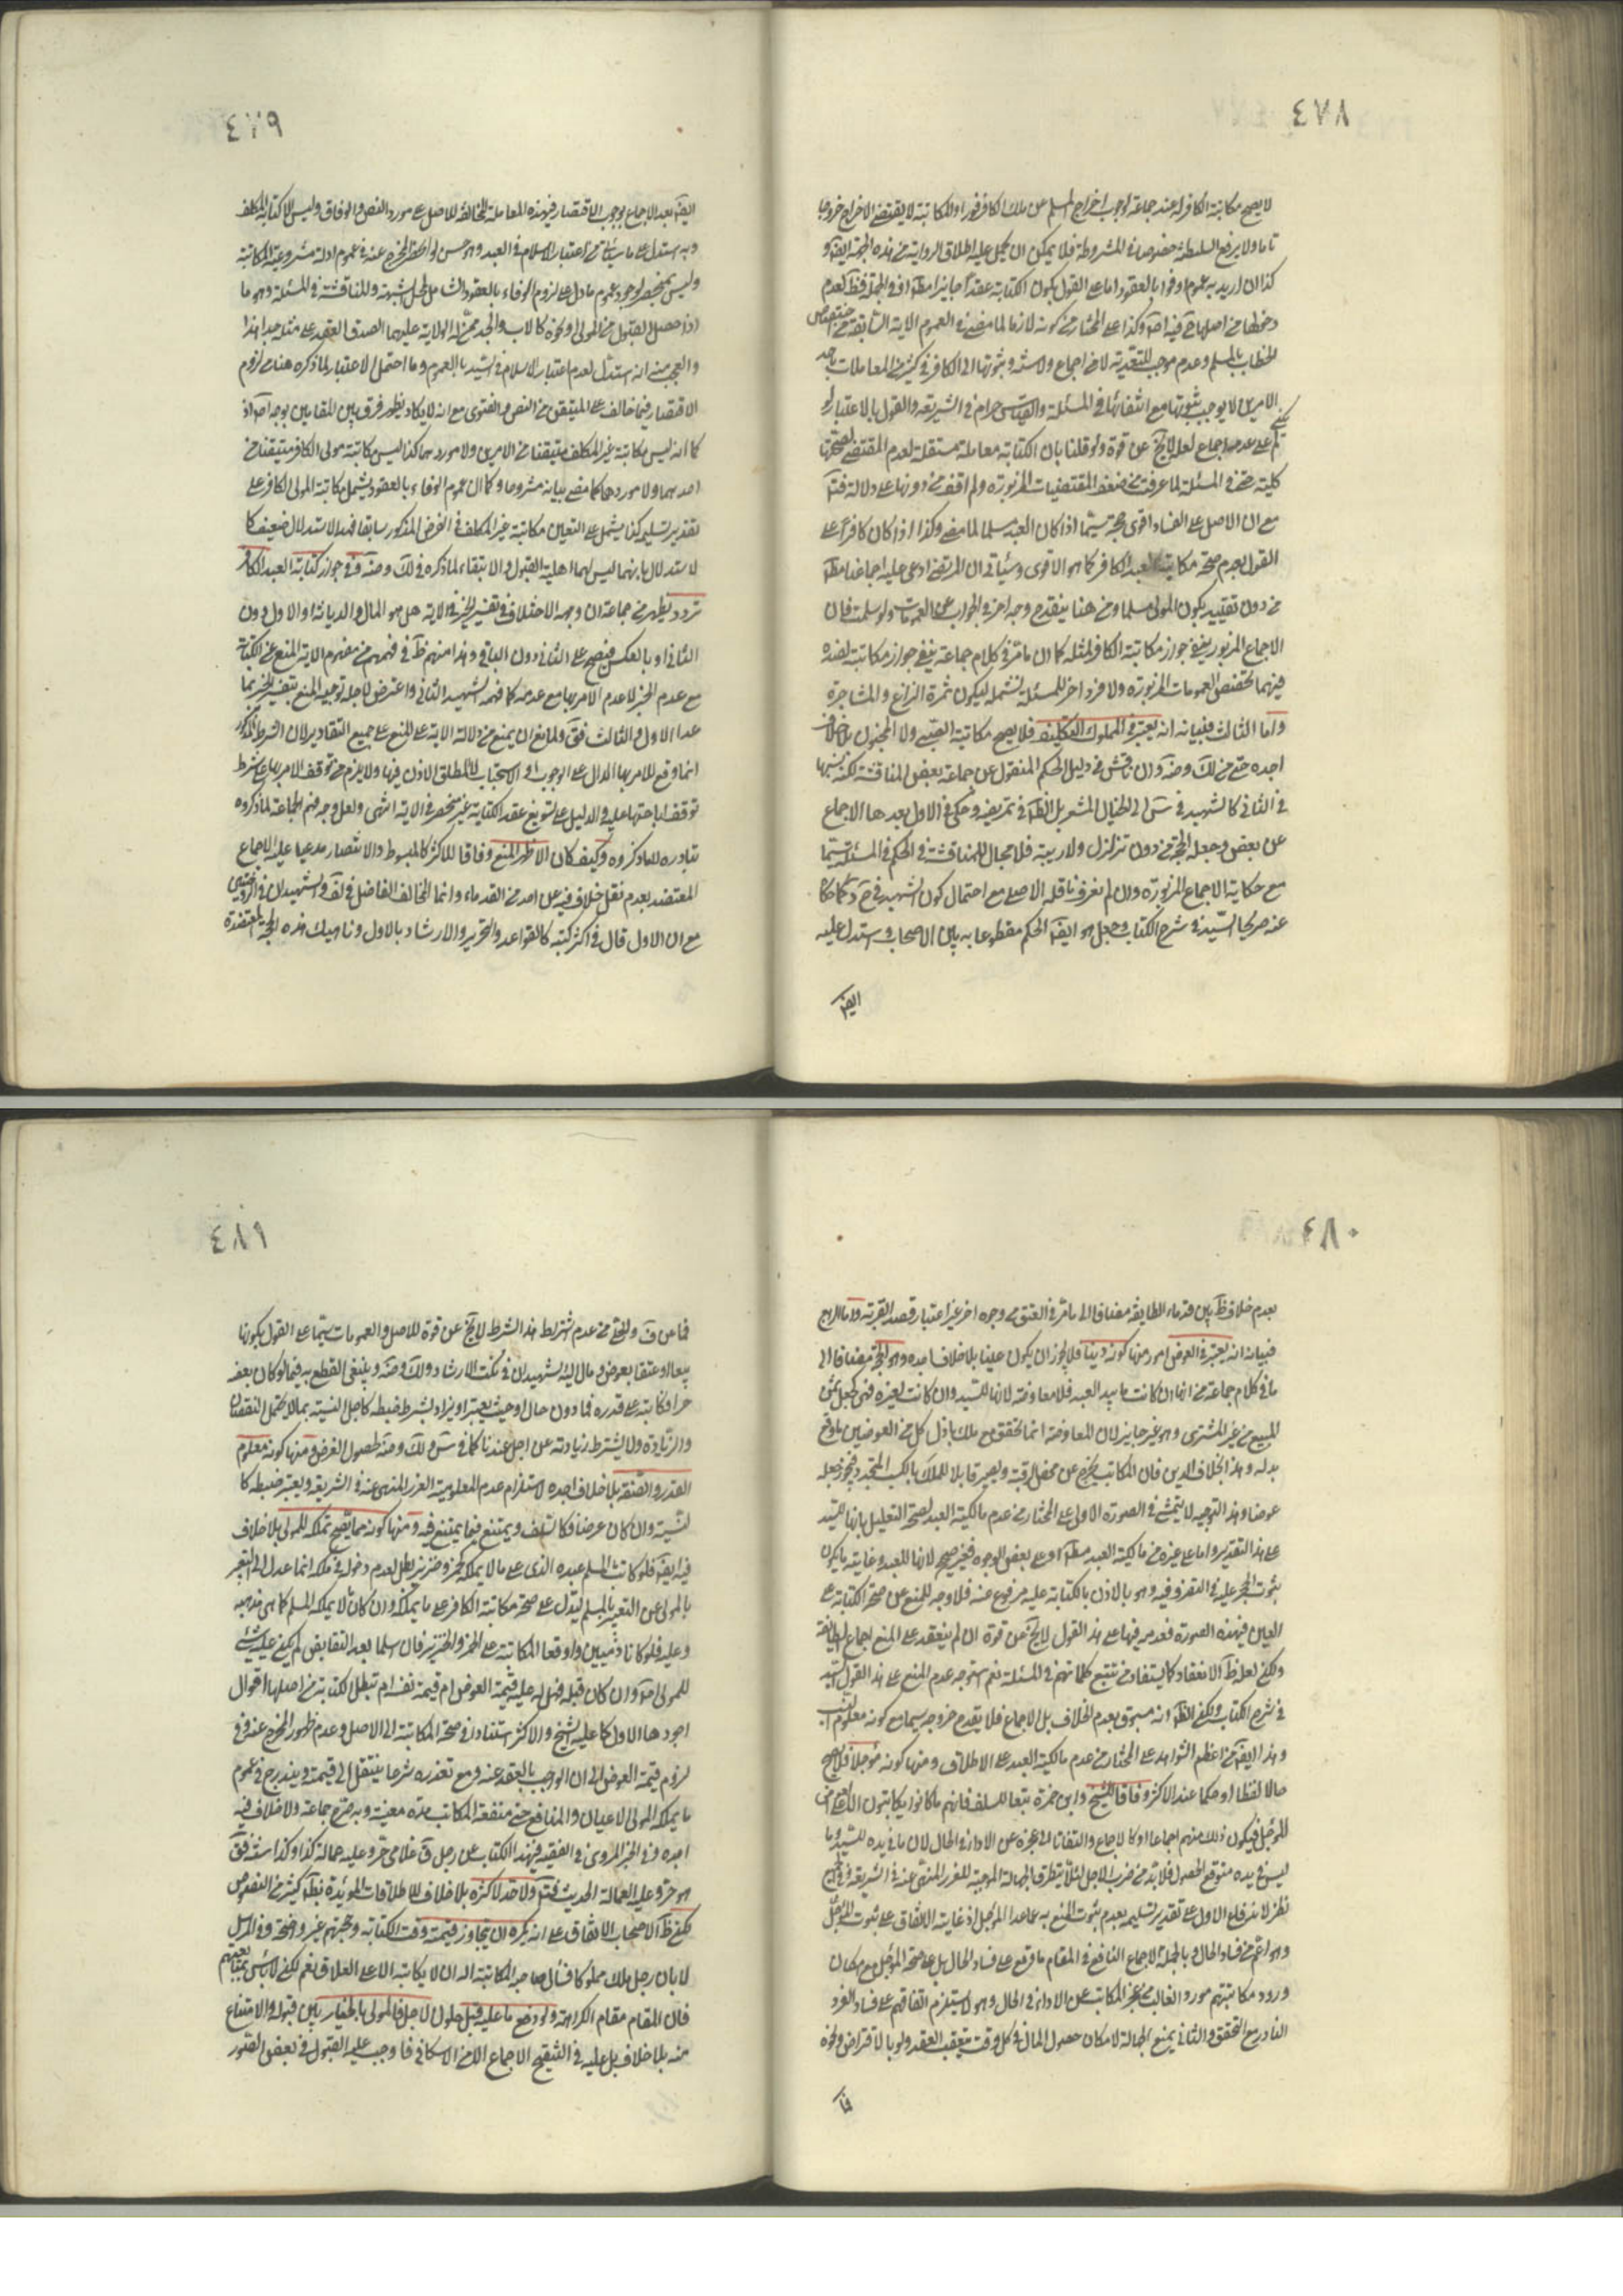 ٤٧٨
لا يصح مكاتبة الكافر له عند جماعة لوجوب اخراج المسلم عن ملك الكافر فورا والمكاتبة لا يقتضى الاخراج خروجا
تاما ولا يرفع السلطنة خصوصا فى المشروطة فلا يمكن ان
كذا ان اريد به عموم اوفوا بالعقود اما على القول بكون الكتابة عقدا جايزا
الخطاب بالمسلم وعدم موجب للتعدية لا من اجماع ولا سنة وثبوتها الى الكافر فى كثير من المعاملات باحد
الامرين لا يوجب ثبوتها مع انتفائها فى المسئلة والقياس حرام فى الشريعة والقول بالاعتبار لو
كلية حتى فى المسئلة لما عرفت من ضعف المقتضيات المزبورة ولم اقف من دونها على دلالة
مع ان الاصل على الفساد اقوى حجة سيما اذا كان العبد مسلما لما مضى وكذا اذا كان كافرا على
القول بعدم صحة مكاتبة العبد الكافر كما هو الاقوى وسيأتى ان المرتضى ادعى عليه اجماعنا
من دون تقييد بكون المولى مسلما ومن هنا ينقدح وجه اخر فى الجواب عن العمومات ولو سلمت فان
الاجماع المزبور ينفى جواز مكاتبة الكافر لمثله كما ان ما مر فى كلام جماعة ينفى جواز مكاتبته لضده
فيهما تختص العمومات المزبورة ولا فرد اخر للمسئلة يشمله ليكون ثمرة النزاع والمشاجرة
واما الثالث فبيانه انه يعتبر فى المملوك التكليف فلا يصح مكاتبة الصبى ولا المجنون بلا خلاف
اجده حتى من لك وضه وان ناقش فى دليل الحكم المنقول عن جماعة بعض المناقشة لكنه نسبها
عن بعض وجعله الحجة من دون تزلزل ولا ريبة فلا مجال للمناقشة فى الحكم فى المسئلة سيما
مع حكاية الاجماع المزبورة وان لم نعرف ناقله الاصلى مع احتمال كون الشهيد
عنه صريحا السيد فى شرح الكتاب وجعل هو ايضا الحكم مقطوعا به بين الاصحاب واستدل عليه
ايضا
٤٧٩
ايضا بعد الاجماع بوجوب الاقتصار فى هذه المعاملة المخالفة للاصل على مورد النص والوفاق وليس الا كتابة المكلف
وبه استدل على ما سيأتى من اعتبار الاسلام فى العبد وهو حسن لولا
وليس بمنحصر لوجود عموم ما دل على لزوم الوفاء بالعقود الشامل لمحل الشبهة والمناقشة فى المسئلة وهو ما
اذا حصل القبول من المولى او نحوه كالاب والجد ممن له الولاية عليهما لصدق العقد على مثله جدا هذا
والعجب منه انه استدل لعدم اعتبار الاسلام فى السيد بالعموم وما احتمل الاعتبار لما ذكره هنا من لزوم
الاقتصار فيما خالف على المتيقن من النص والفتوى مع انه لا يكاد يظهر فرق بين المقامين بوجه اصلا اذ
كما انه ليس مكاتبة غير المكلف متيقنا من الامرين ولا موردهما كذا ليس مكاتبة مولى الكافر متيقنا من
احدهما ولا موردها كما مضى بيانه مشروحا وكما ان عموم الوفاء بالعقود يشمل مكاتبة المولى الكافر على
تقدير تسليمه كذا يشمل على التعيين مكاتبة غير المكلف فى الفرض المذكور سابقا فهذا الاستدلال ضعيف كا
لاستدلال بانهما ليس لهما اهلية القبول والابتغاء لما ذكره فى لك وضه وفى جواز كتابة العبد الكافر
تردد يظهر من جماعة ان وجهه الاختلاف فى تفسير الخير فى الاية هل هو المال والديانة او الاول دون
الثانى او بالعكس فيصح على الثانى دون الباقى وهذا منهم ظ فى فهمهم من مفهوم الاية المنع عن الكتابة
مع عدم الخير لا عدم الامر بها مع عدمه كما فهمه الشهيد الثانى واعترض لاجله توجيه المنع بتفسير الخير بما
عدا الاول والثالث فق ولمانع ان يمنع من دلالة الاية على المنع على جميع التقادير لان الشرط المذكور
انما وقع للامر بها الدال على الوجوب او الاستحباب لا لمطلق الاذن فيها ولا يلزم من توقف الامر بها على شرط
توقف اباحتها عليه والدليل على تسويغ عقد الكتابة غير منحصر فى الاية انتهى ولعل وجه فهم الجماعة لما ذكروه
تبادره لما ذكروه وكيف كان الاظهر المنع وفاقا للاكثر كالمبسوط والانتصار مدعيا عليه الاجماع
المعتضد بعدم نقل خلاف فيه عن احد من القدماء وانما المخالف الفاضل فى لف والشهيدان
مع ان الاول قال فى اكثر كتبه كالقواعد والتحرير والارشاد بالاول وناهيك هذه الحجة المعتضدة
٤٨٠
بعدم خلاف ظ بين قدماء الطايفة مضافا الى ما مر فى العتق من وجوه اخر غير اعتبار قصد القربة واما الرابع
فبيانه انه يعتبر فى العوض امور منها كونه دينا فلا يجوز ان يكون عينا بلا خلاف اجده وهو الحجة مضافا الى
ما فى كلام جماعة من انها ان كانت بيد العبد فلا معاوضة لانها للسيد وان كانت لغيره فهى كجعل ثمن
المبيع من غير المشترى وهو غير جايز لان المعاوضة انما تتحقق مع ملك باذل كل من العوضين ما وقع
بدله وهذا بخلاف الدين فان المكاتب يخرج عن محض الرقية ويصير قابلا للملك بالكسب المتجدد فيجوز جعله
عوضا وهذا التوجيه لا يتمشى فى الصورة الاولى على المختار من عدم مالكية العبد لصحة التعليل بانها للسيد
على هذا التقدير واما على غيره من مالكية العبد مطلقا او على بعض الوجوه فغير صحيح لانها للعبد وغايته ما يكون
ثبوت الحجر عليه فى التصرف فيه وهو بالاذن بالكتابة عليه مرفوع عنه فلا وجه للمنع عن صحة الكتابة على
العين فى هذه الصورة
ولكنه لعل ظ الانعقاد كما يستفاد من تتبع كلماتهم فى المسئلة نعم استوجه عدم المنع على هذا القول السيد
فى شرح الكتاب ولكن الظ انه مسبوق بعدم الخلاف بل الاجماع فلا يقدح خروجه سيما مع كونه معلوم النسب
وهذا ايضا من اعظم الشواهد على المختار من عدم مالكية العبد على الاطلاق ومنها كونه مؤجلا فلا يصح
حالا لفظا او حكما عند الاكثر وفاقا للشيخ وابن حمزة تبعا للسلف فانهم ما كانوا يكاتبون الا على العوض
المؤجل فيكون ذلك منهم اجماعا او كالاجماع والتفاتا الى عجزه عن الاداء فى الحال لان ما فى يده للسيد وما
ليس فى يده متوقع الحصول فلا بد من ضرب الاجل لئلا يتطرق الجهالة الموجبة للغرر المنهى عنه فى الشريعة
نظر لاندفاع الاول على تقدير تسليمه بعدم ثبوت المنع به عما عدا المؤجل اذ غايته الاتفاق على ثبوت المؤجل
وهو اعم من فساد الحال وبالجملة الاجماع النافع فى المقام ما وقع على فساد الحال بل على صحة المؤجل مع امكان
ورود مكاتبتهم مورد الغالب من عجز المكاتب عن الاداء فى الحال وهو لا يستلزم اتفاقهم على فساد الفرد
النادر مع التحقق والثانى يمنع الجهالة لامكان حصول المال فى كل وقت يتعقب العقد ولو بالاقتراض ونحوه
فما
٤٨١
فما عن ف والحلى من عدم اشتراط هذا الشرط لا يخ عن قوة للاصل والعمومات سيما على القول بكونها
بيعا او عتقا بعوض ومال اليه الشهيدان فى نكت الارشاد ولك وضه وينبغى القطع به فيما لو كان بعضه
حرا فكاتبه على قدره فما دون حالا وحيث يعتبر او يراد يشترط ضبطه كاجل النسية بما لا يحتمل النقصان
والزيادة ولا يشترط زيادته عن اجل عندنا كما فى س ولك وضه لحصول الغرض ومنها كونه معلوم
القدر والصفة بلا خلاف اجده لاستلزام عدم المعلومية الغرر المنهى عنه فى الشريعة ويعتبر ضبطه كا
لنسية وان كان عرضا فكالسلف ويمتنع فيما يمتنع فيه ومنها كونه مما يصح تملكه للمولى بلا خلاف
فيه ايضا فلو كاتب المسلم عبده الذمى على ما لا يملكه كخمر وخنزير بطل لعدم دخوله فى ملكه انما عدل الى التعبير
بالمولى عن التعبير بالمسلم ليدل على صحة مكاتبة الكافر على ما يملكه وان كان لا يملكه المسلم كما هى مذهبه
وعليه فلو كانا ذميين واوقعا المكاتبة على الخمر والخنزير فان اسلما بعد التقابض لم يكن عليه شئ
للمولى اصلا وان كان قبله فهل له عليه قيمة العوض ام قيمة نفسه ام تبطل الكتابة من اصلها اقوال
اجودها الاول كما عليه الشيخ والاكثر استنادا فى صحة المكاتبة الى الاصل وعدم ظهور المخرج عنه وفى
لزوم قيمة العوض الى ان الواجب بالعقد عينه ومع تعذره شرعا ينتقل الى قيمته ويندرج فى عموم
ما يملكه المولى الاعيان والمنافع حتى منفعة المكاتب مدة معينة وبه صرح جماعة ولا خلاف فيه
اجده وفى الخبر المروى فى الفقيه فى هذا الكتاب عن رجل ق غلامى حر وعليه عمالة كذا وكذا سنة فق
هو حر وعليه العمالة الحديث فتدبر ولا حد لاكثره بلا خلاف للاطلاقات المؤيدة بظ كثير من النصوص
لكن ظ الاصحاب الاتفاق على انه يكره ان يتجاوز قيمته وقت الكتابة وحجتهم غير واضحة وفى المرسل
فان المقام مقام الكراهة ولو دفع ما عليه قبل حلول الاجل فالمولى بالخيار بين قبوله والامتناع
منه بلا خلاف بل عليه فى التنقيح الاجماع الا من الاسكافى فاوجب عليه القبول فى بعض الصور